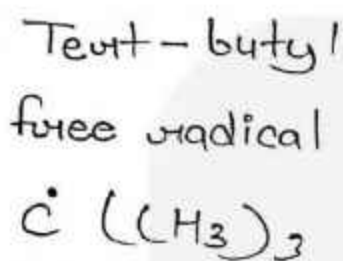 Tert-butyl
free radical
Ċ (CH₃)₃